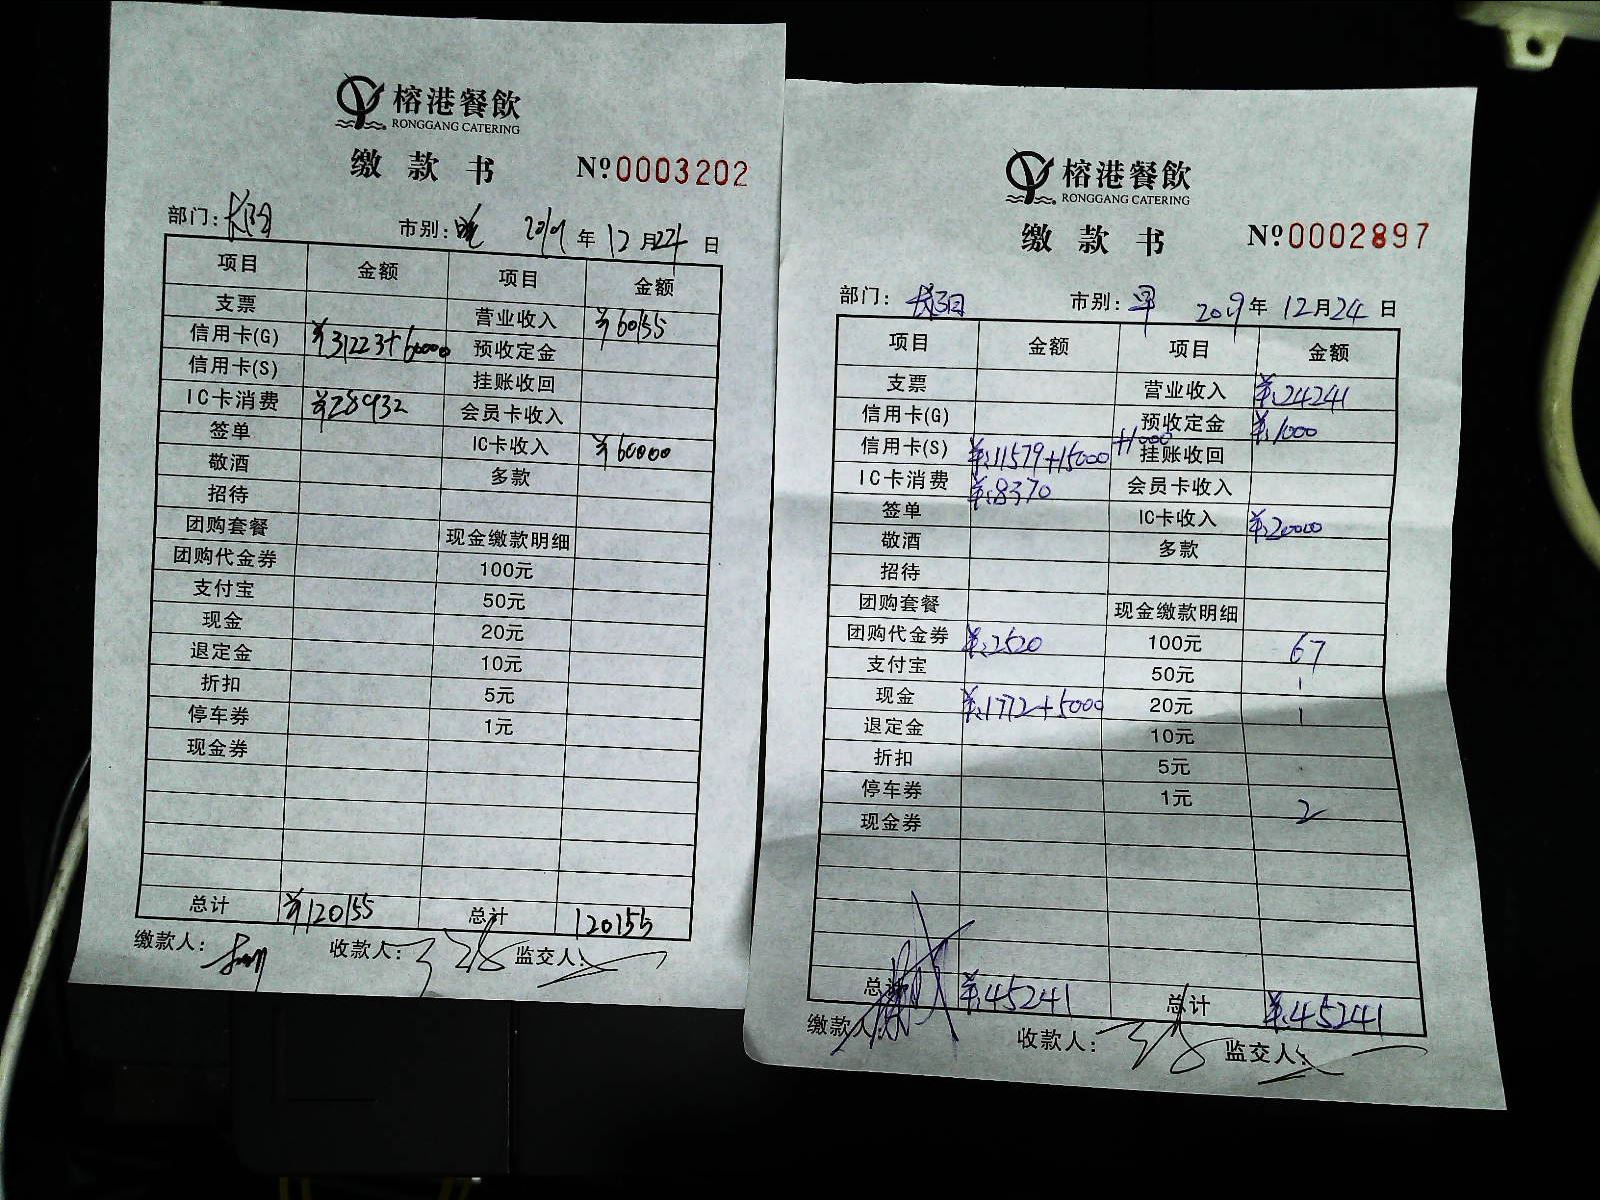 榕港餐飲
RONGGANG CATERING
缴款书 №0003202
部门: 市别:晚 2019年12月24日
项目 金额 项目 金额
支票 营业收入 ¥60155
信用卡(G) ¥31223+60000 预收定金
信用卡(S) 挂账收回
IC卡消费 ¥28932 会员卡收入
签单 IC卡收入 ¥60000
敬酒 多款
招待
团购套餐 现金缴款明细
团购代金券 100元
支付宝 50元
现金 20元
退定金 10元
折扣 5元
停车券 1元
现金券
总计 ¥120155 总计 120155
缴款人: 收款人: 监交人:
榕港餐飲
RONGGANG CATERING
缴款书 №0002897
部门: 市别:早 2019年12月24日
项目 金额 项目 金额
支票 营业收入 ¥:24241
信用卡(G) 预收定金 ¥:1000
信用卡(S) ¥:11579+15000+1000 挂账收回
IC卡消费 ¥:8370 会员卡收入
签单 IC卡收入 ¥:20000
敬酒 多款
招待
团购套餐 现金缴款明细
团购代金券 ¥:2520 100元 67
支付宝 50元 1
现金 ¥:1772+5000 20元 1
退定金 10元
折扣 5元
停车券 1元 2
现金券
总计 ¥:45241 总计 ¥:45241
缴款人: 收款人: 监交人: